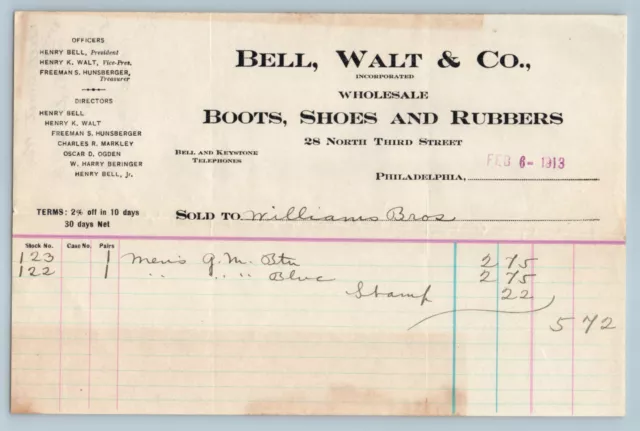 OFFICERS
HENRY BELL, President
HENRY K. WALT, Vice-Pres.
FREEMAN S. HUNSBERGER,
Treasurer
DIRECTORS
HENRY BELL
HENRY K. WALT
FREEMAN S. HUNSBERGER
CHARLES R. MARKLEY
OSCAR D. OGDEN
W. HARRY BERINGER
HENRY BELL, Jr.
TERMS: 2% off in 10 days
30 days Net
BELL, WALT & CO.,
INCORPORATED
WHOLESALE
BOOTS, SHOES AND RUBBERS
28 NORTH THIRD STREET
BELL AND KEYSTONE
TELEPHONES
FEB 6- 1913
PHILADELPHIA,
SOLD TO Williams Bros
Stock No. Case No. Pairs
123 1 Men's G. M. Btn 2 75
122 1 " " " Bluc 2 75
Stamp 22
5 72